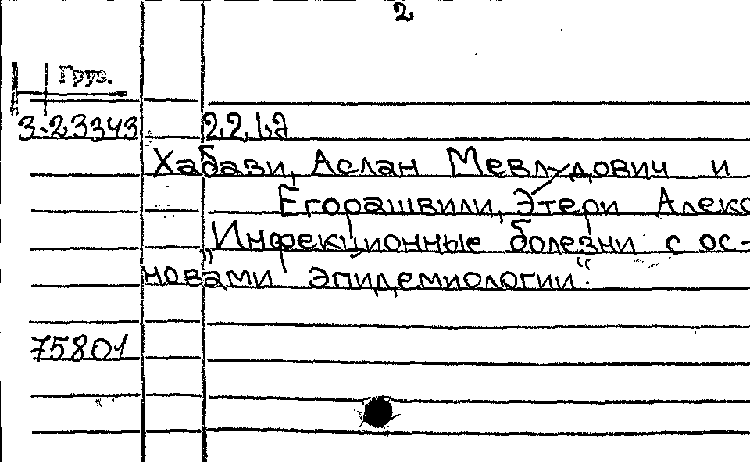 2
Груз.
3-23343
Хабази, Аслан Мевлудович и
Егорашвили, Этери Алекс
"Инфекционные болезни с ос-
новами эпидемиологии".
75801